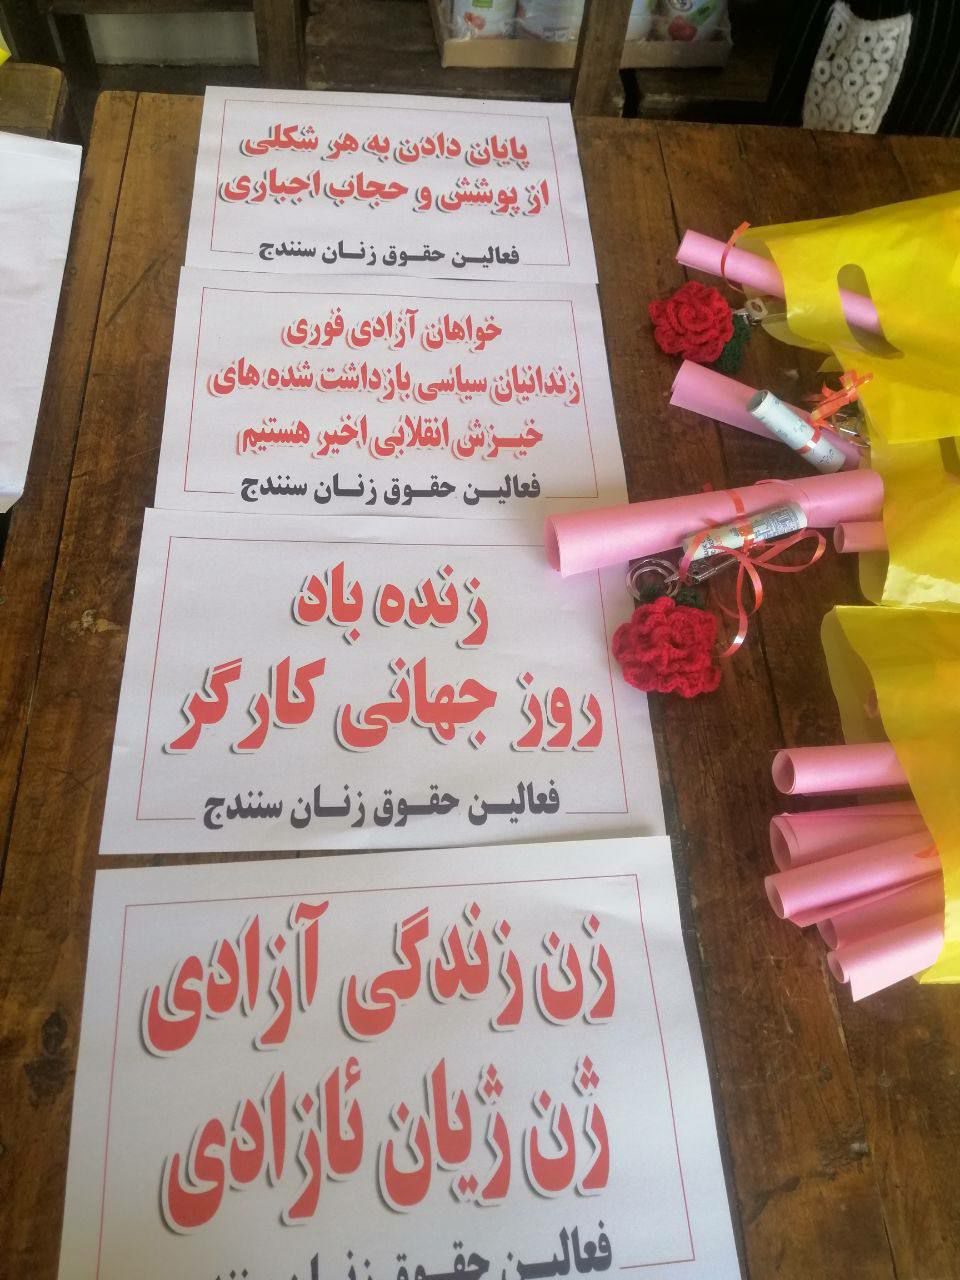 پایان دادن به هر شکلی
از پوشش و حجاب اجباری
فعالین حقوق زنان سنندج
خواهان آزادی فوری
زندانیان سیاسی بازداشت شده های
خیزش انقلابی اخیر هستیم
فعالین حقوق زنان سنندج
زنده باد
روز جهانی کارگر
فعالین حقوق زنان سنندج
زن زندگی آزادی
ژن ژیان ئازادی
فعالین حقوق زنان